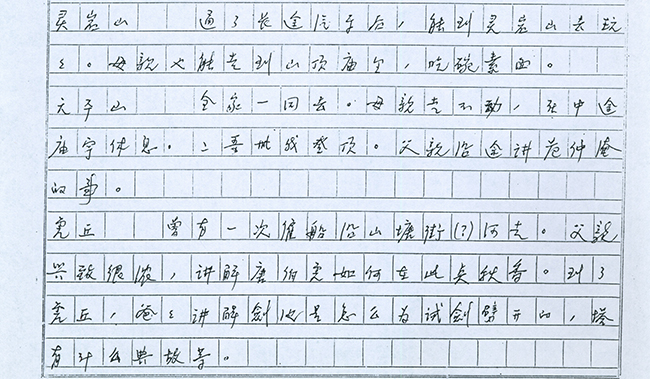 灵岩山　通了长途汽车后，能到灵岩山去玩
〻。母亲也能走到山顶庙里，吃碗素面。
天平山　全家一同去。母亲走不动，在中途
庙宇休息。二哥    登顶。父亲沿途讲范仲淹
的事。
虎丘　曾有一次催船沿山塘街(?)河走。父亲
兴致很浓，讲解唐伯虎如何在此点秋香。到了
虎丘，爸〻讲解剑池是怎么为试剑劈开的，塔
有什么典故等。